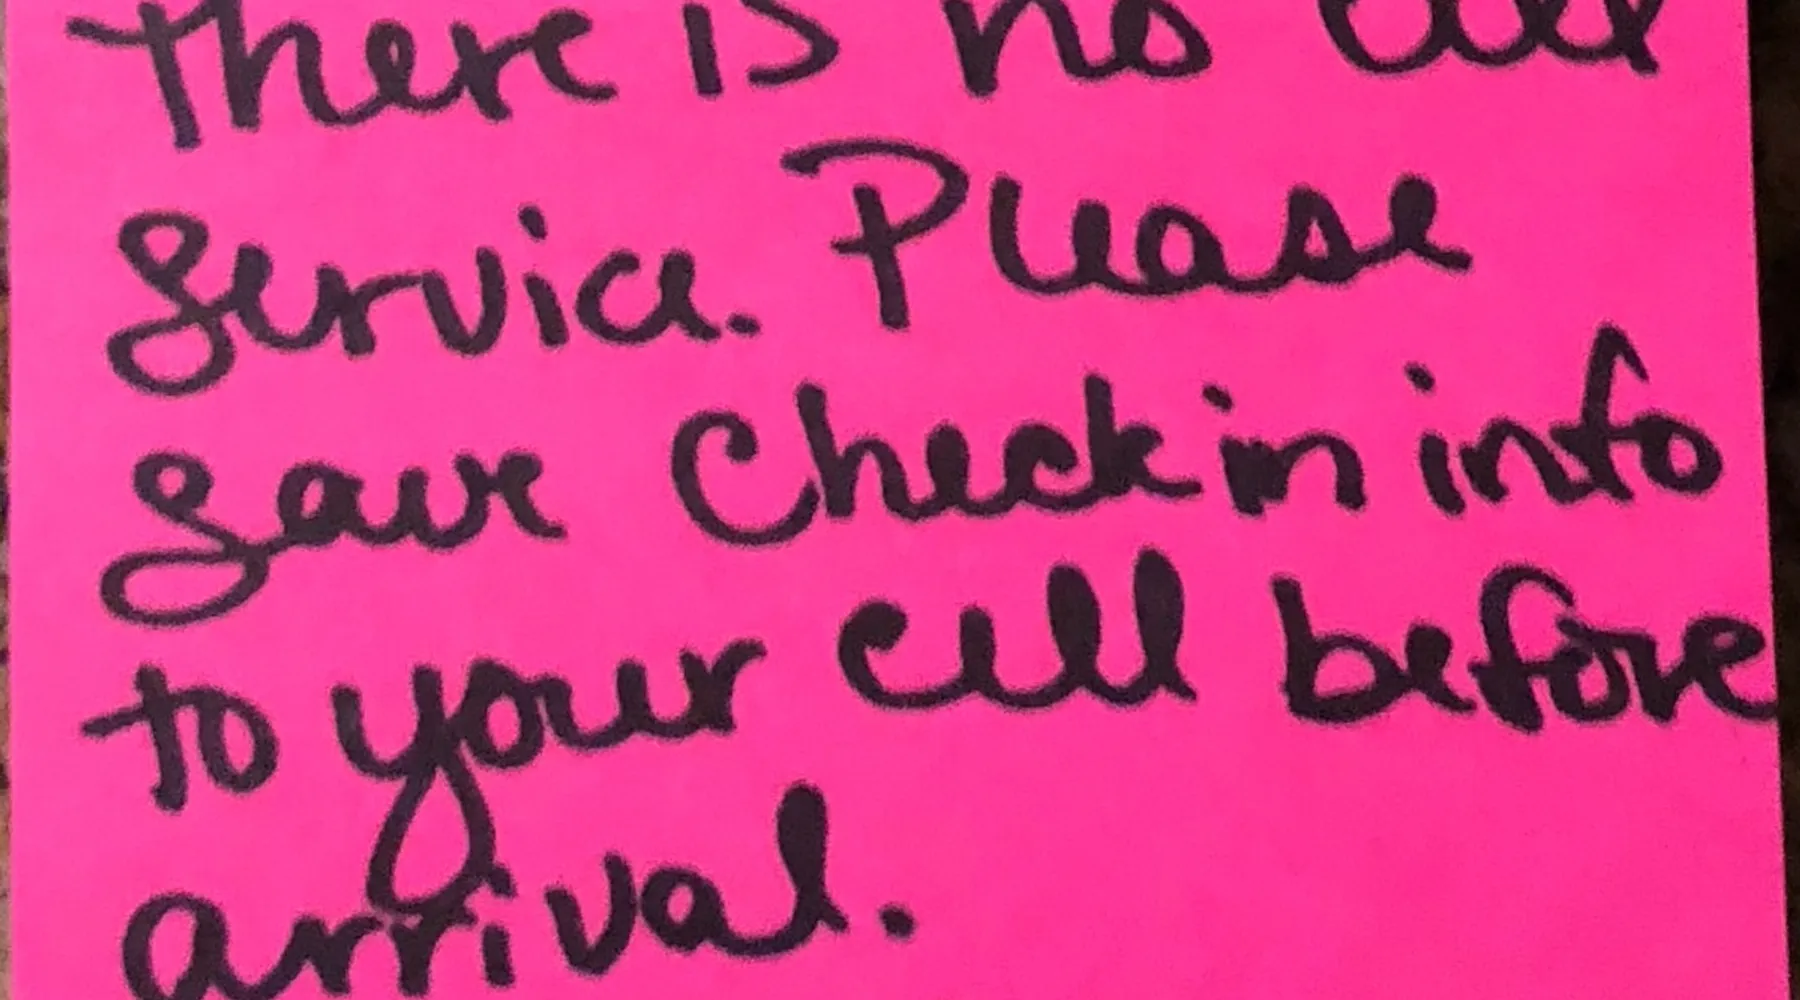 There is no cell
Service. Please
Save Check in info
to your cell before
arrival.